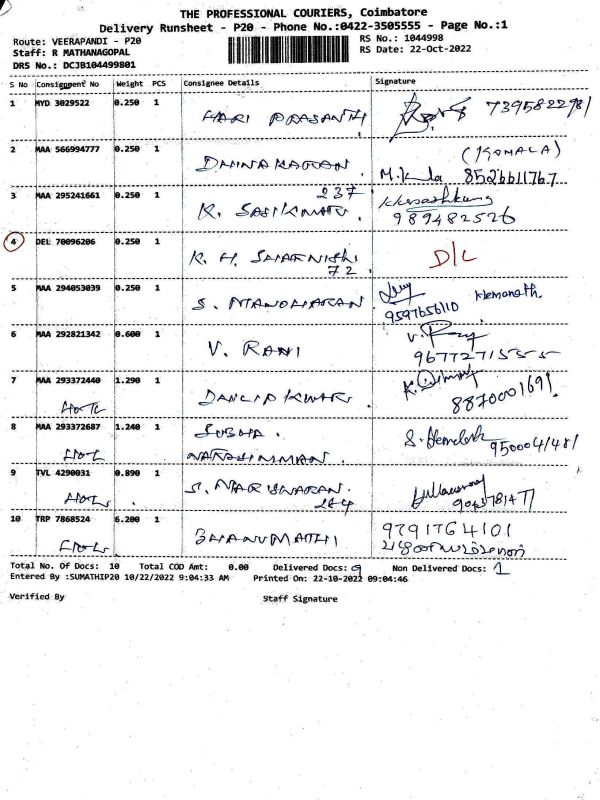 THE PROFESSIONAL COURIERS, Coimbatore
Delivery Runsheet - P20 - Phone No.:0422-3505555 - Page No.:1
Route: VEERAPANDI - P20
Staff: R MATHANAGOPAL
DRS No.: DCJB104499801
RS No.: 1044998
RS Date: 22-Oct-2022
S No Consignment No Weight PCS Consignee Details Signature
1 MYD 3029522 0.250 1 HARI PRASANTH
2 MAA 566994777 0.250 1 DHINAKARAN (KOMALA)
8526611767
3 MAA 295241661 0.250 1 237
R. SASIKUMAR
989482526
4 DEL 70096206 0.250 1 K. H. 72 D/L
5 MAA 294053039 0.250 1 S. MANOHARAN Hemanath.
9597656110
6 MAA 292821342 0.600 1 V. RANI
9677271555
7 MAA 293372440 1.290 1 DANLIP KUMAR
8870001691
8 MAA 293372687 1.240 1 SUBHA.
NARASIMMAN
9 TVL 4290031 0.890 1
9043781477
10 TRP 7868524 6.200 1 BHANUMATHI 9791764101
Total No. Of Docs: 10 Total COD Amt: 0.00 Delivered Docs: 9 Non Delivered Docs: 1
Entered By :SUMATHIP20 10/22/2022 9:04:33 AM Printed On: 22-10-2022 09:04:46
Verified By Staff Signature